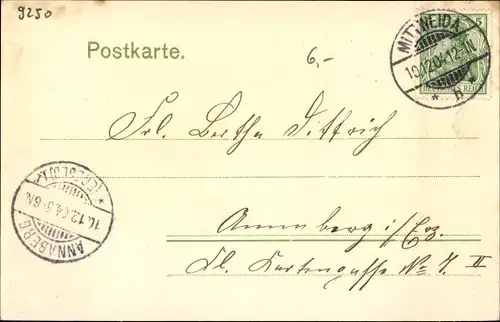 9250
Postkarte.
6,-
MITTWEIDA
10.12.04.12-1N.
5
DEUTSCHES REICH
Frl. Bertha Dittrich
Annaberg i/Erz.
Kl. Kartengasse No 7. II
ANNABERG
10.12.04.5-6N.